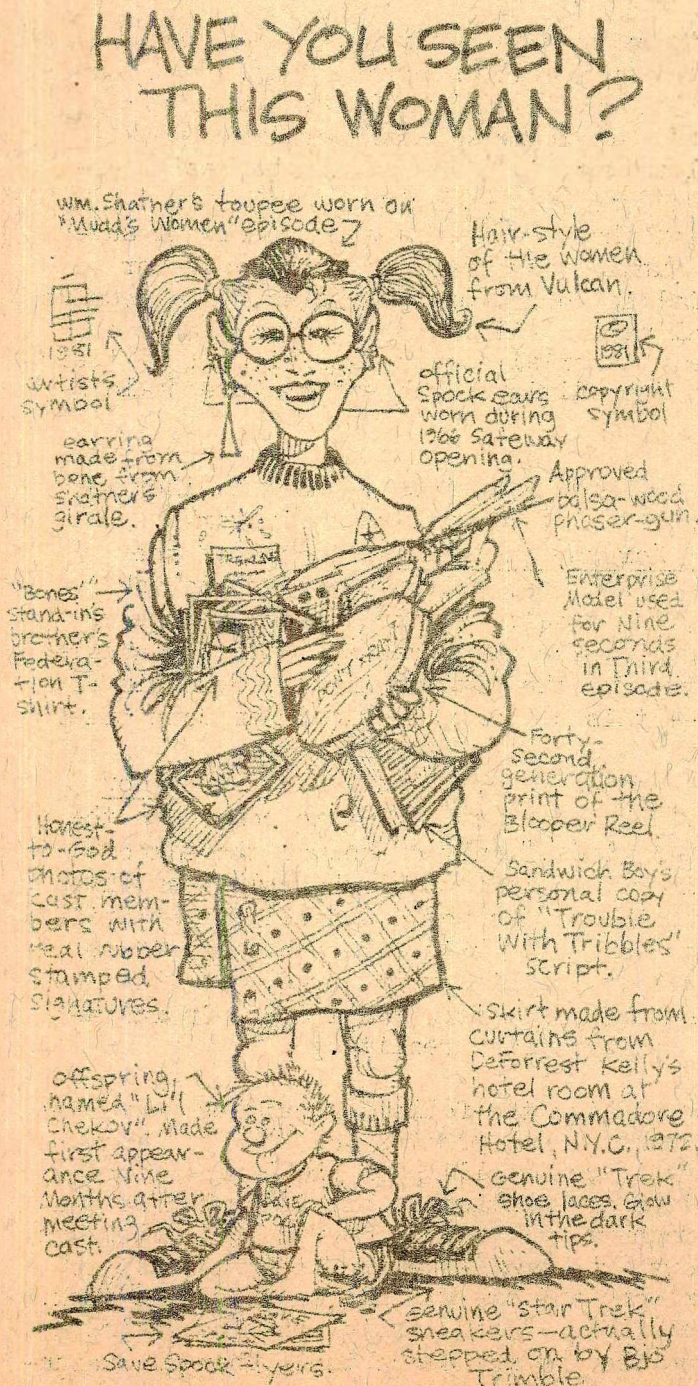 HAVE YOU SEEN
THIS WOMAN?
Wm. Shatner's toupee worn on
"Mudd's Women" episode
Hair-style
of the women
from Vulcan.
1981
artist's
symbol
©
1981
copyright
symbol
official
Spock ears
worn during
1966 Safeway
opening.
earring
made from
bone from
shatner's
girdle.
Approved
balsa-wood
phaser-gun.
"Bones'"
stand-in's
brother's
Federa-
tion T-
shirt.
Enterprise
Model used
for Nine
seconds
in Third
episode.
DON'T
Forty-
Second
generation
print of the
Blooper Reel.
Honest-
to-God
photos of
cast mem-
bers with
real rubber
stamped
signatures.
Sandwich Boy's
personal copy
of "Trouble
With Tribbles"
script.
Skirt made from
curtains from
DeForrest Kelly's
hotel room at
the Commadore
Hotel, N.Y.C., 1972.
offspring,
named "Li'l
Chekov". Made
first appear-
ance Nine
Months after
meeting
cast.
Genuine "Trek"
shoe laces. Glow
in the dark
tips.
Genuine "Star Trek"
sneakers—actually
stepped on by Bjo
Trimble.
Save Spock flyers.